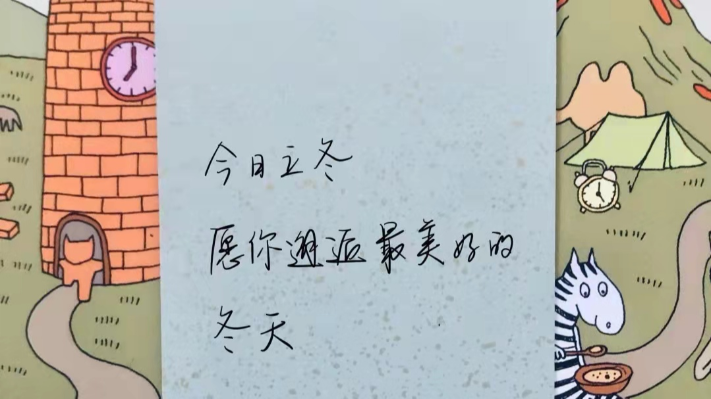 今日立冬
愿你邂逅最美好的
冬天